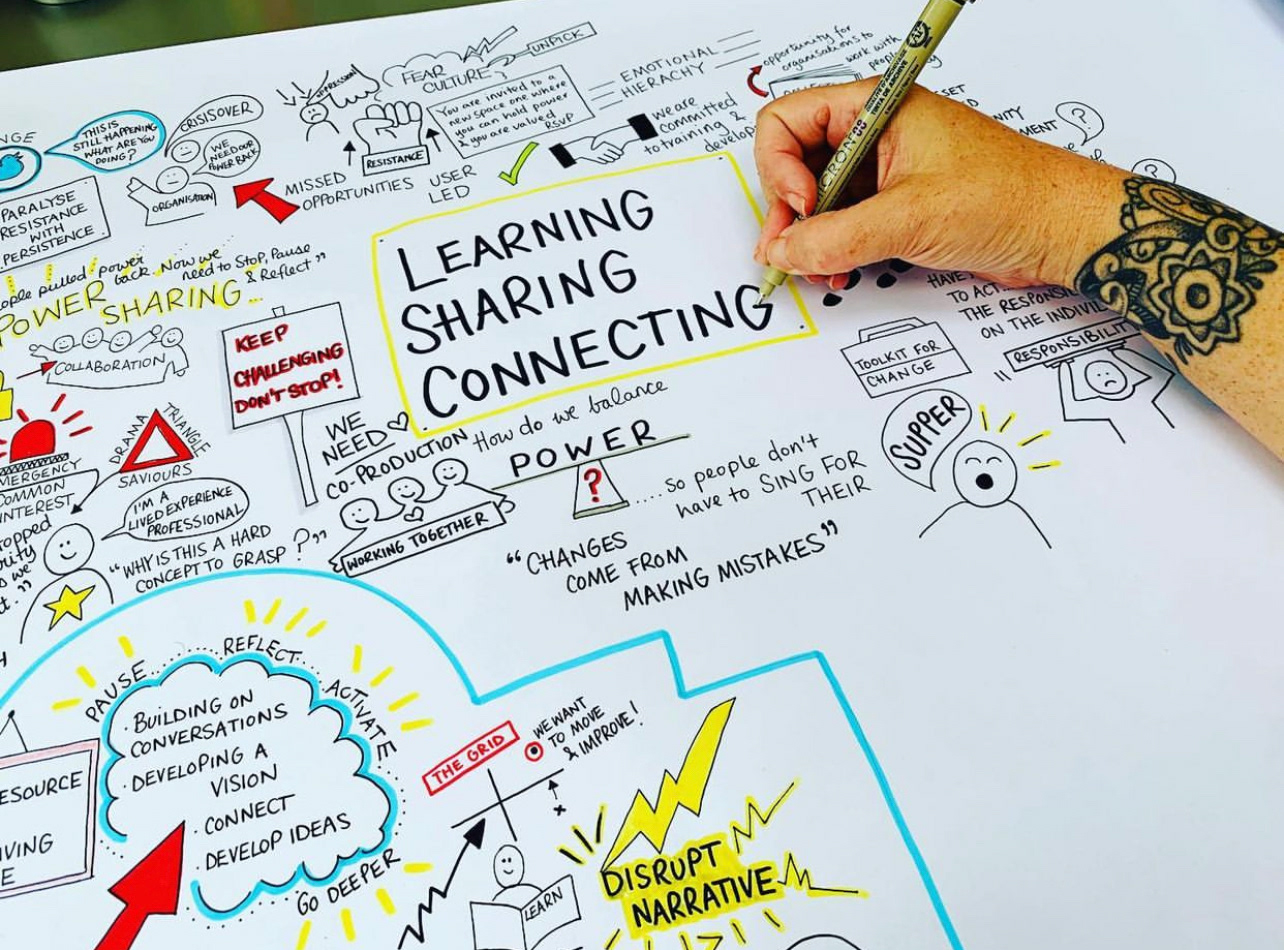 FEAR
CULTURE
UNPICK
OPPRESSION
EMOTIONAL
HIERACHY
opportunity for
organisations to
work with
You are invited to a
new space one where
you can hold power
& you are valued
RSVP
we are
committed
to training &
RESISTANCE
CRISISOVER
THIS IS
STILL HAPPENING
WHAT ARE YOU
DOING?
WE
NEED OUR
POWER BACK
ORGANISATION
MISSED
OPPORTUNITIES
USER
LED
PARALYSE
RESISTANCE
WITH
PERSISTENCE
pulled power
back. Now we
need to Stop, Pause
& Reflect"
POWER
SHARING...
COLLABORATION
KEEP
CHALLENGING
DON'T STOP!
LEARNING
SHARING
CONNECTING
TO ACT
THE
ON THE
TOOLKIT FOR
CHANGE
RESPONSIBILITY
SUPPER
WE
NEED
CO-PRODUCTION
WORKING TOGETHER
How do we balance
POWER
?
.... so people don't
have to SING FOR
THEIR
"CHANGES
COME FROM
MAKING MISTAKES"
DRAMA
TRIANGLE
SAVIOURS
COMMON
I'M A
LIVED EXPERIENCE
PROFESSIONAL
"WHY IS THIS A HARD
CONCEPT TO GRASP?"
PAUSE... REFLECT... ACTIVATE
· BUILDING ON
CONVERSATIONS
· DEVELOPING A
VISION
· CONNECT
· DEVELOP IDEAS
GO DEEPER
THE GRID
WE WANT
TO MOVE
& IMPROVE!
LEARN
DISRUPT
NARRATIVE